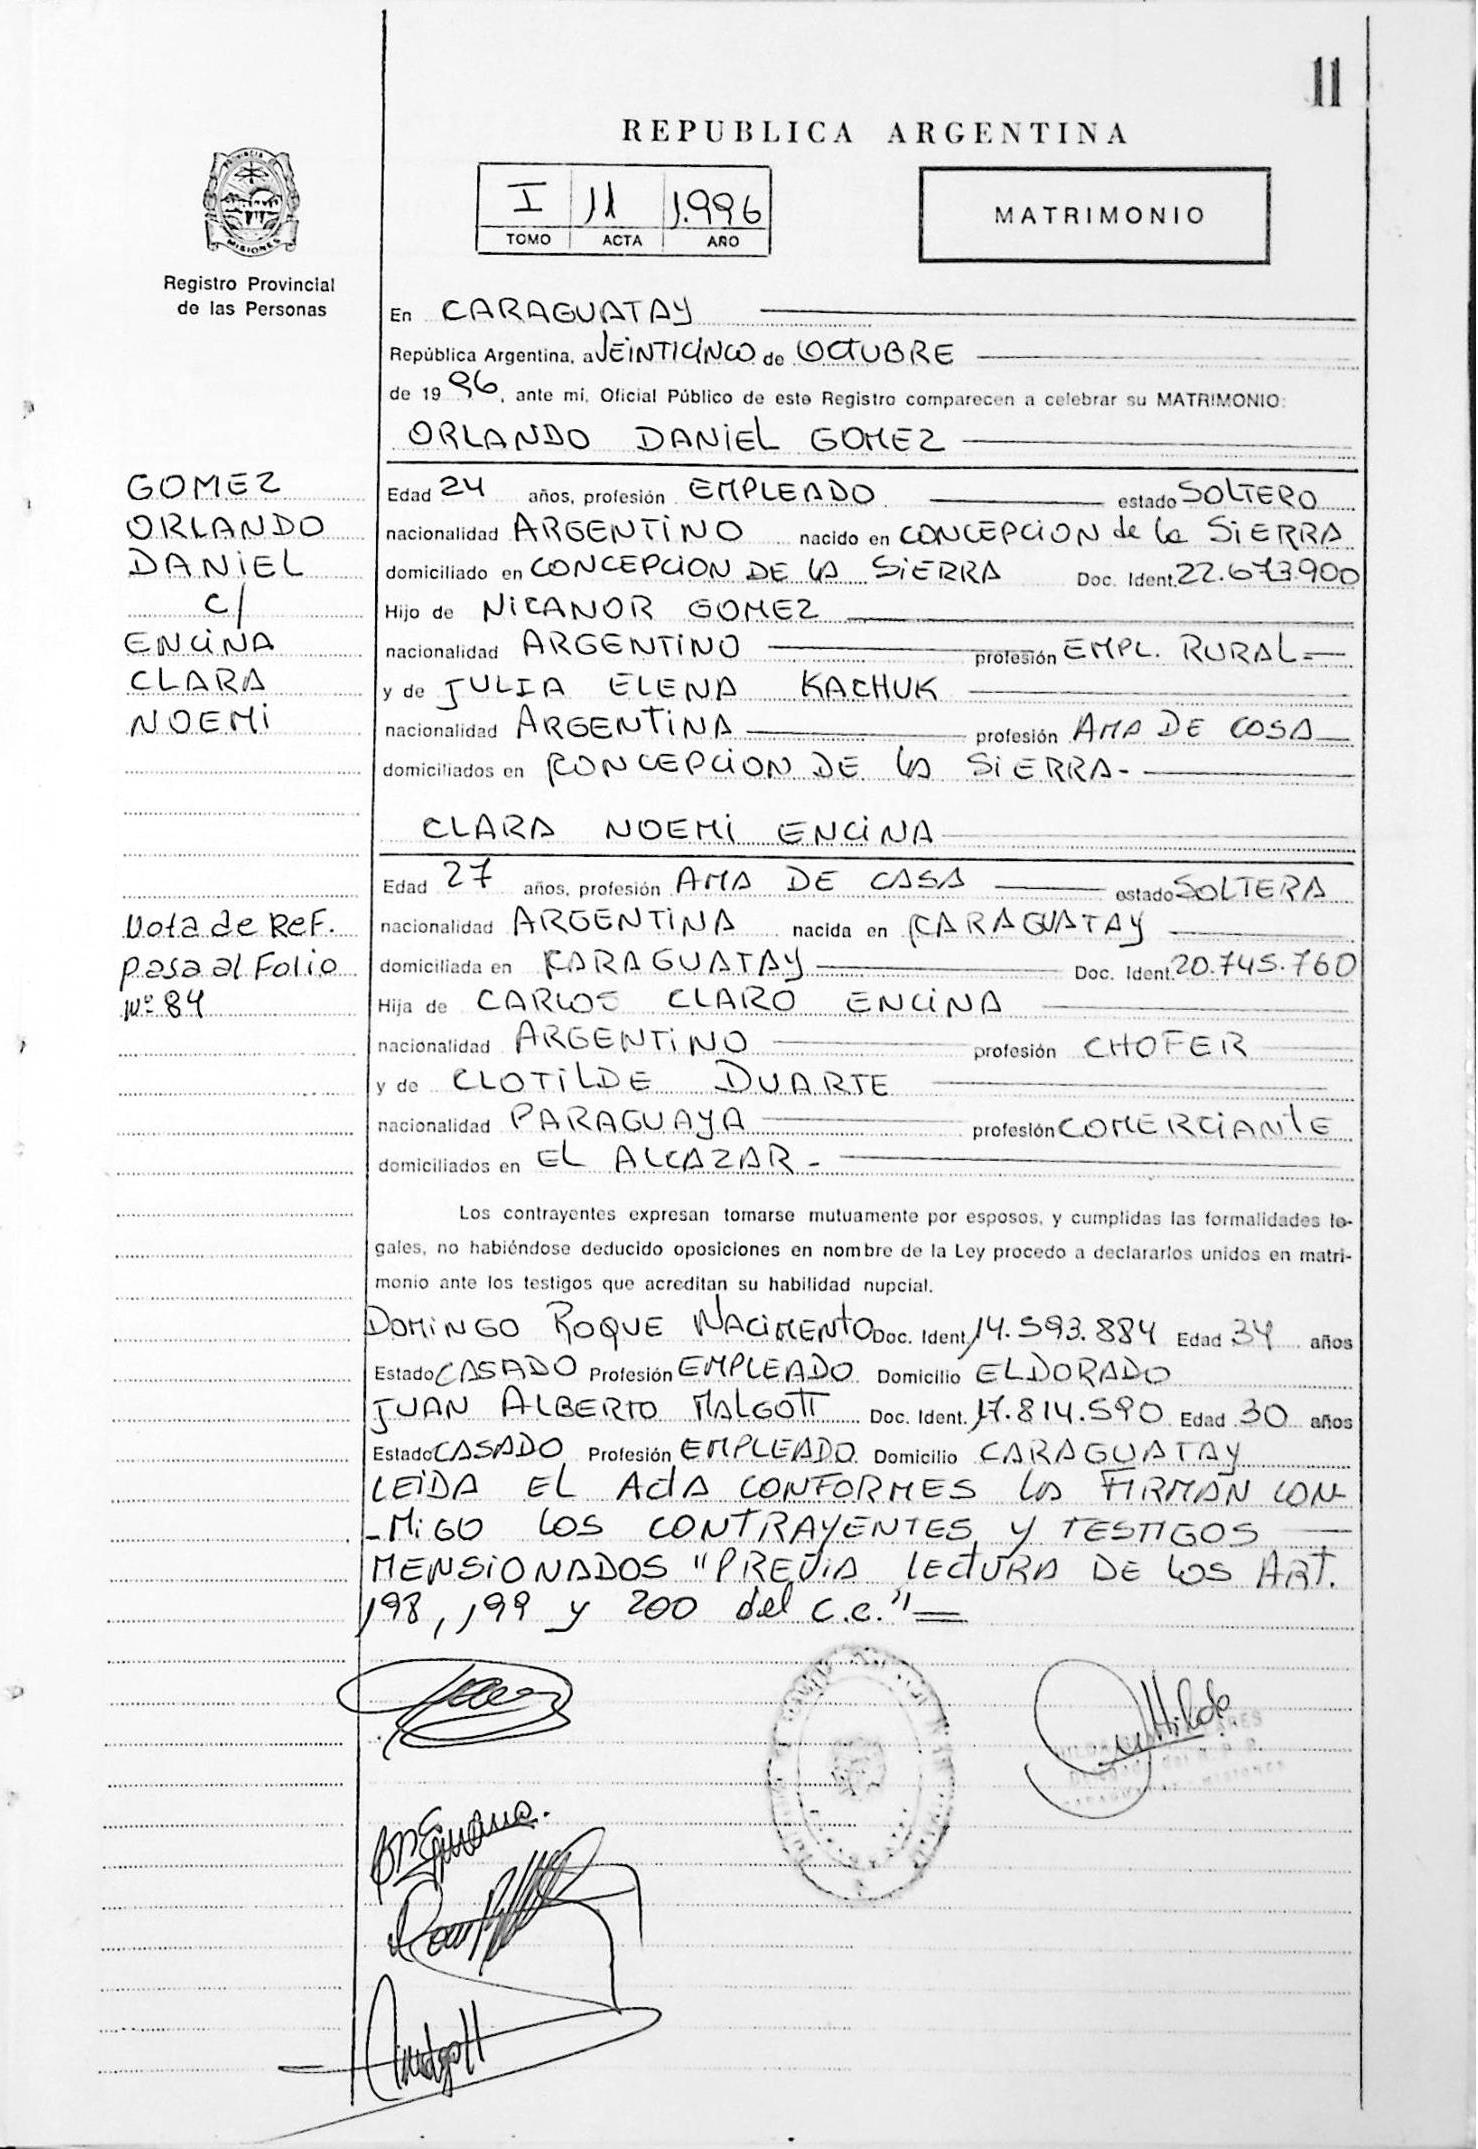 11
REPUBLICA ARGENTINA
I 11 1.996
TOMO ACTA AÑO
MATRIMONIO
PROVINCIA DE
MISIONES
Registro Provincial
de las Personas
En CARAGUATAY
República Argentina, a VEINTICINCO de OCTUBRE
de 19 96, ante mí, Oficial Público de este Registro comparecen a celebrar su MATRIMONIO:
ORLANDO DANIEL GOMEZ
GOMEZ
ORLANDO
DANIEL
c/
ENCINA
CLARA
NOEMI
Edad 24 años, profesión EMPLEADO estado SOLTERO
nacionalidad ARGENTINO nacido en CONCEPCION de la SIERRA
domiciliado en CONCEPCION DE LA SIERRA Doc. Ident. 22.673.900
Hijo de NICANOR GOMEZ
nacionalidad ARGENTINO profesión EMPL. RURAL.=
y de JULIA ELENA KACHUK
nacionalidad ARGENTINA profesión AMA DE COSA
domiciliados en CONCEPCION DE LA SIERRA.-
CLARA NOEMI ENCINA
Edad 27 años, profesión AMA DE CASA estado SOLTERA
nacionalidad ARGENTINA nacida en CARAGUATAY
domiciliada en CARAGUATAY Doc. Ident. 20.745.760
Hija de CARLOS CLARO ENCINA
nacionalidad ARGENTINO profesión CHOFER
y de CLOTILDE DUARTE
nacionalidad PARAGUAYA profesión COMERCIANTE
domiciliados en EL ALCAZAR.-
Nota de REF.
pasa al Folio
Nº 84
Los contrayentes expresan tomarse mutuamente por esposos, y cumplidas las formalidades le-
gales, no habiéndose deducido oposiciones en nombre de la Ley procedo a declararlos unidos en matri-
monio ante los testigos que acreditan su habilidad nupcial.
DOMINGO ROQUE NACIMENTO Doc. Ident. 14.593.884 Edad 34 años
Estado CASADO Profesión EMPLEADO Domicilio ELDORADO
JUAN ALBERTO MALGOTT Doc. Ident. 17.814.590 Edad 30 años
Estado CASADO Profesión EMPLEADO Domicilio CARAGUATAY
LEIDA EL ACTA CONFORMES LA FIRMAN CON-
-MIGO LOS CONTRAYENTES Y TESTIGOS
MENSIONADOS "PREVIA LECTURA DE LOS ART.
198, 199 y 200 del c.c."=